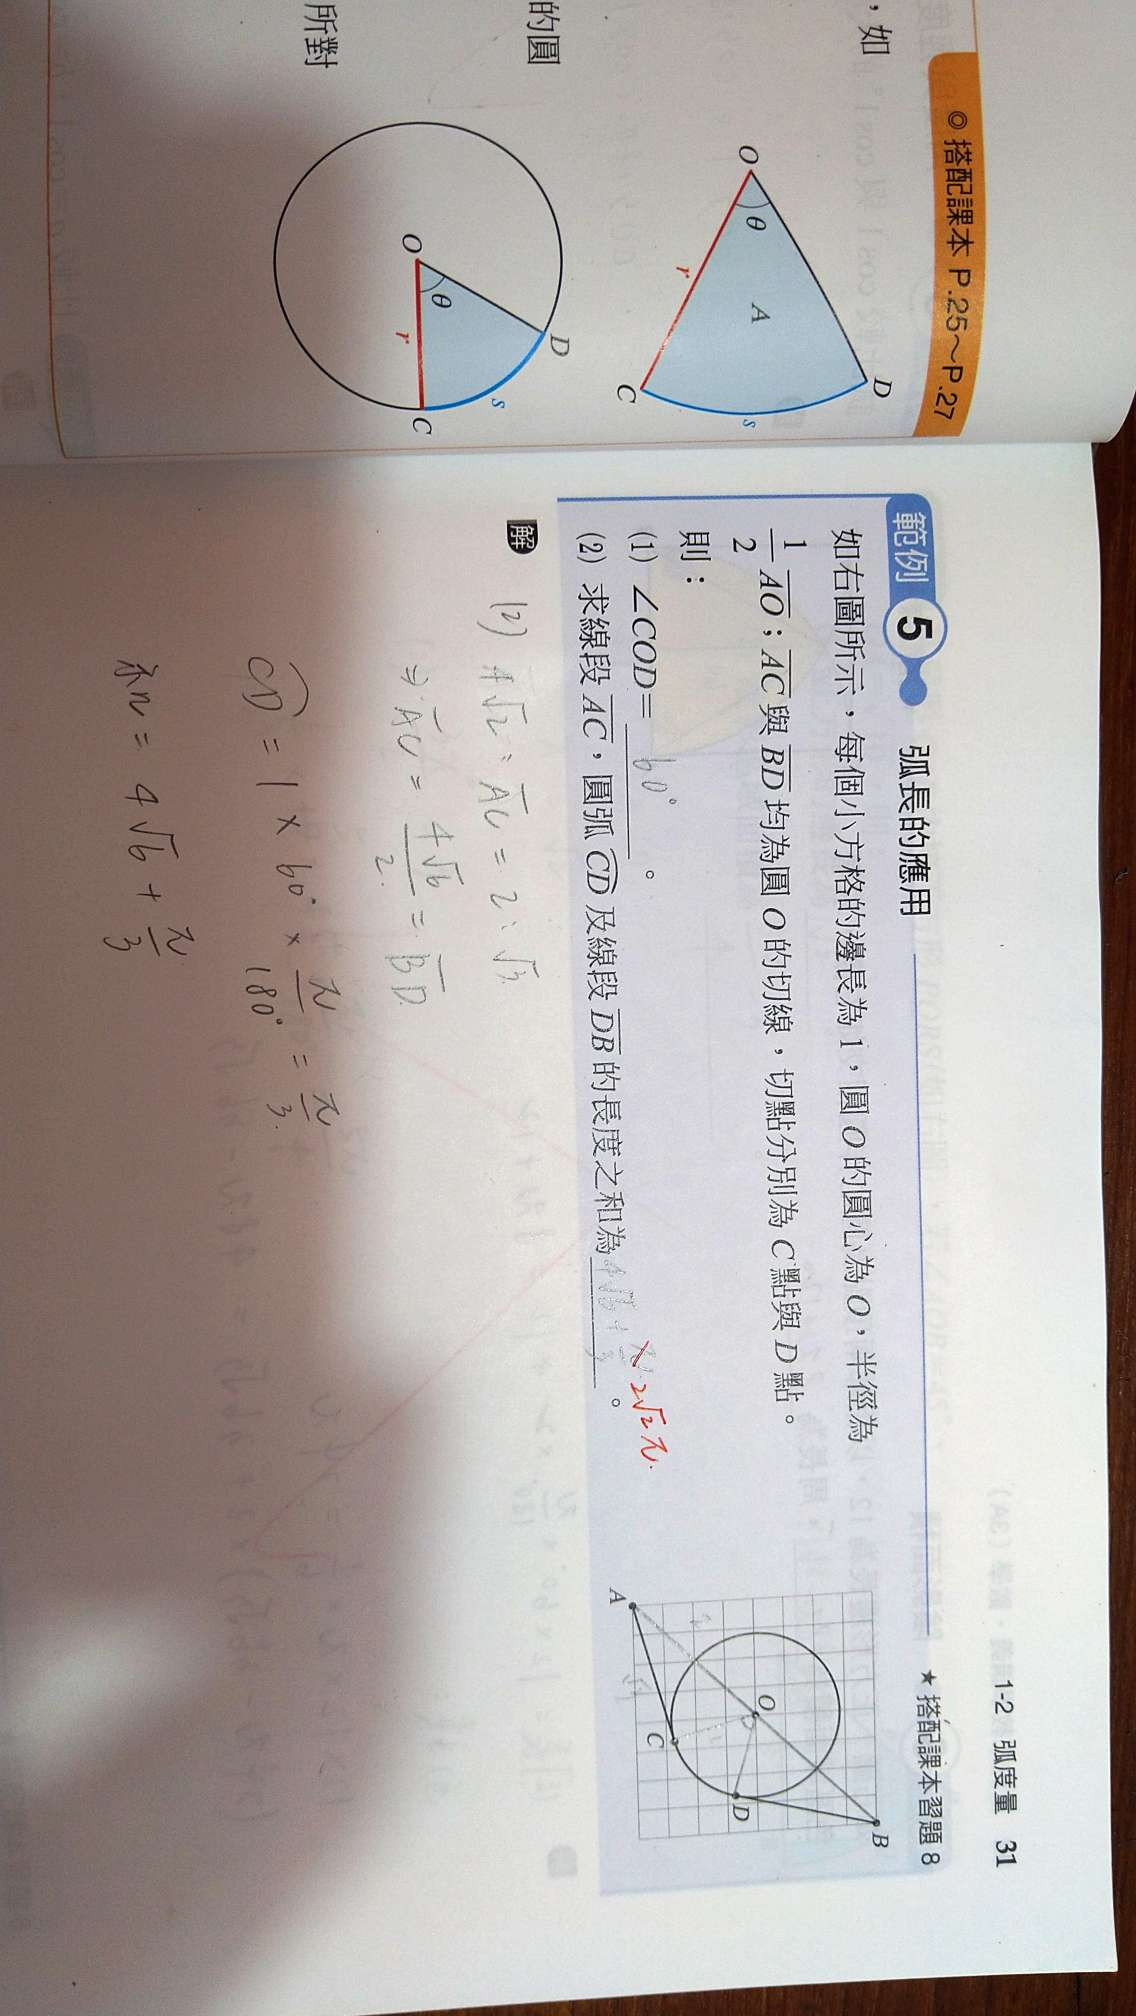 ，如
◎搭配課本 P.25～P.27
O
θ
r
A
D
C
s
的圓
所對
O
θ
r
D
s
C
1-2 弧度量 31
範例 5 弧長的應用
★搭配課本習題 8
如右圖所示，每個小方格的邊長為 1，圓 O 的圓心為 O，半徑為
1/2 AO；AC 與 BD 均為圓 O 的切線，切點分別為 C 點與 D 點。
則：
(1) ∠COD= 60° 。
(2) 求線段 AC，圓弧 CD 及線段 DB 的長度之和為 4√6+π/3 。
2√2π.
A
O
C
D
B
解
(2) 4√2：AC = 2：√3
⇒ AC = 4√6/2 = BD
CD = 1 × 60° × π/180° = π/3
= 4√6 + π/3